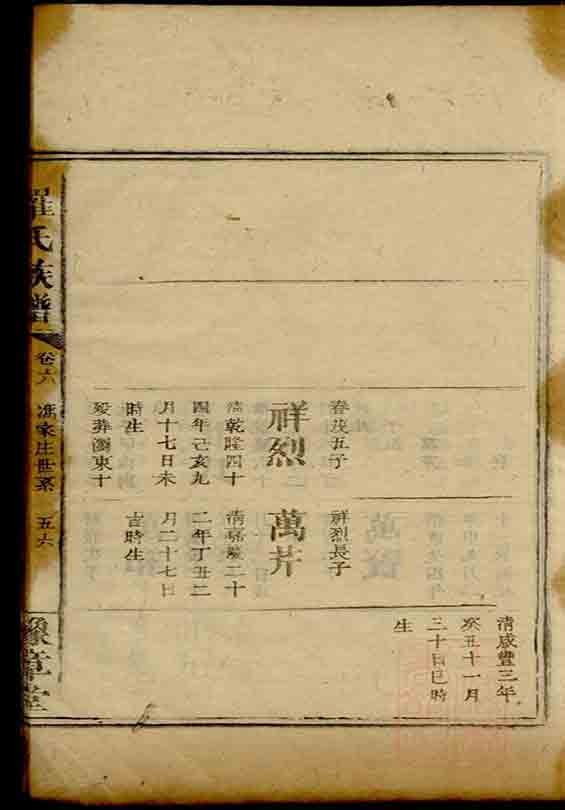 春茂五子
祥烈
清乾隆四十
四年己亥九
月十七日未
時生
歿葬瀏東十
祥烈長子
萬芹
清嘉慶二十
二年丁丑二
月二十七日
吉時生
清咸豐三年
癸丑十一月
三十日巳時
生
羅氏族譜
卷六
馮家庄世系
五六
豫章堂